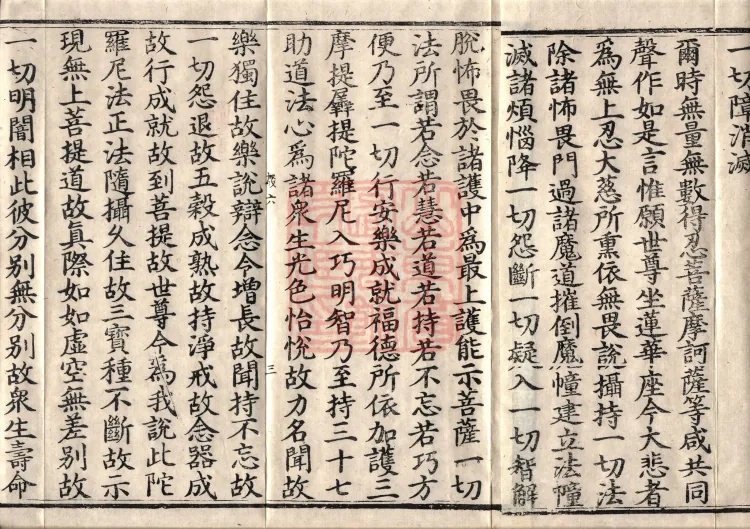 一切障消滅
爾時無量無數得忍菩薩摩訶薩等咸共同
聲作如是言惟願世尊坐蓮華座令大悲者
為無上忍大慈所熏依無畏說攝持一切法
除諸怖畏門過諸魔道摧倒魔幢建立法幢
滅諸煩惱降一切怨斷一切疑入一切智解
脫怖畏於諸護中爲最上護能示菩薩一切
法所謂若念若慧若道若持若不忘若巧方
便乃至一切行安樂成就福德所依加護三
摩提羼提陀羅尼入巧明智乃至持三十七
助道法心爲諸衆生光色怡悅故力名聞故
樂獨住故樂說辯念令增長故聞持不忘故
一切怨退故五穀成熟故持淨戒故念器成
故行成就故到菩提故世尊令為我說此陀
羅尼法正法隨攝久住故三寶種不斷故示
現無上菩提道故眞際如如虛空無差別故
一切明闇相此彼分別無分別故衆生壽命
六
三